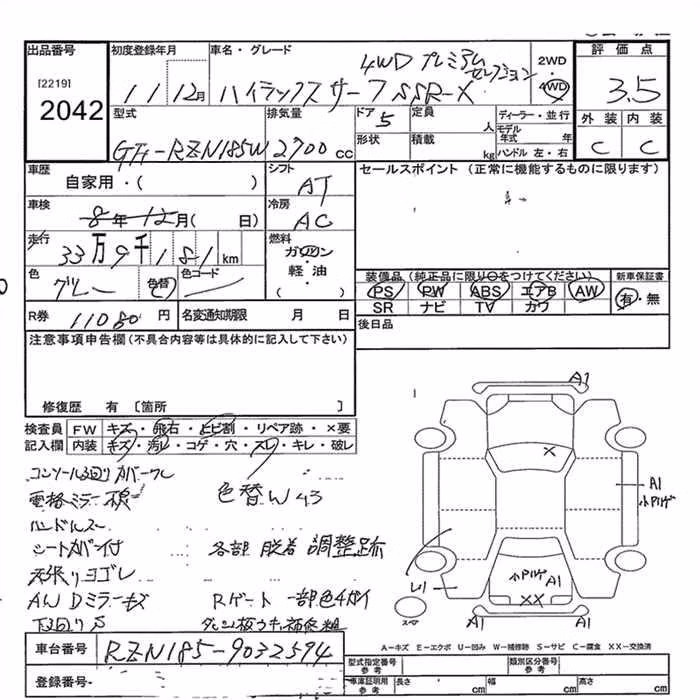 出品番号 初度登録年月 車名・グレード 評価点
[2219]
2042
11 12月
ハイラックスサーフ SSR-X
4WD プレミアム
セレクション
2WD
4WD
3.5
外装 内装
C C
型式 排気量 ドア 定員 ディーラー・並行
RZN185W 2700 cc
5 人
モデル年式 年
形状 積載 kg ハンドル 左・右
車歴
自家用・( )
シフト
AT
セールスポイント (正常に機能するものに限ります)
車検
8年12月( 日)
冷房
AC
走行
33万9千181 km
燃料
ガソリン
・
軽・油
・
( )
色 色替 色コード
グレー
装備品 (純正品に限り○をつけてください) 新車保証書
PS PW ABS エアB AW
SR ナビ TV カワ
有・無
R券 11080 円 名変通知期限 月 日
後日品
注意事項申告欄 (不具合内容等は具体的に記入して下さい)
修復歴 有 〔箇所 〕
検査員 FW キズ・飛石・ヒビ割・リペア跡・×要
記入欄 内装 キズ・汚レ・コゲ・穴・スレ・キレ・破レ
電格ミラー
色替W43
ハンドルスレ
シートカバー付
各部 脱着 調整跡
天張りヨゴレ
AW Dミラーキズ
Rゲート 一部色
下回りサビ
A1
A1
小
A1
XX
A1 A1
スペア
A-キズ E-エクボ U-凹み W-補修跡 S-サビ C-腐食 XX-交換済
車台番号 RZN185-9032594
登録番号-
型式指定番号 参考 類別区分番号 参考
車庫証明用 参考 長さ cm 幅 cm 高さ cm